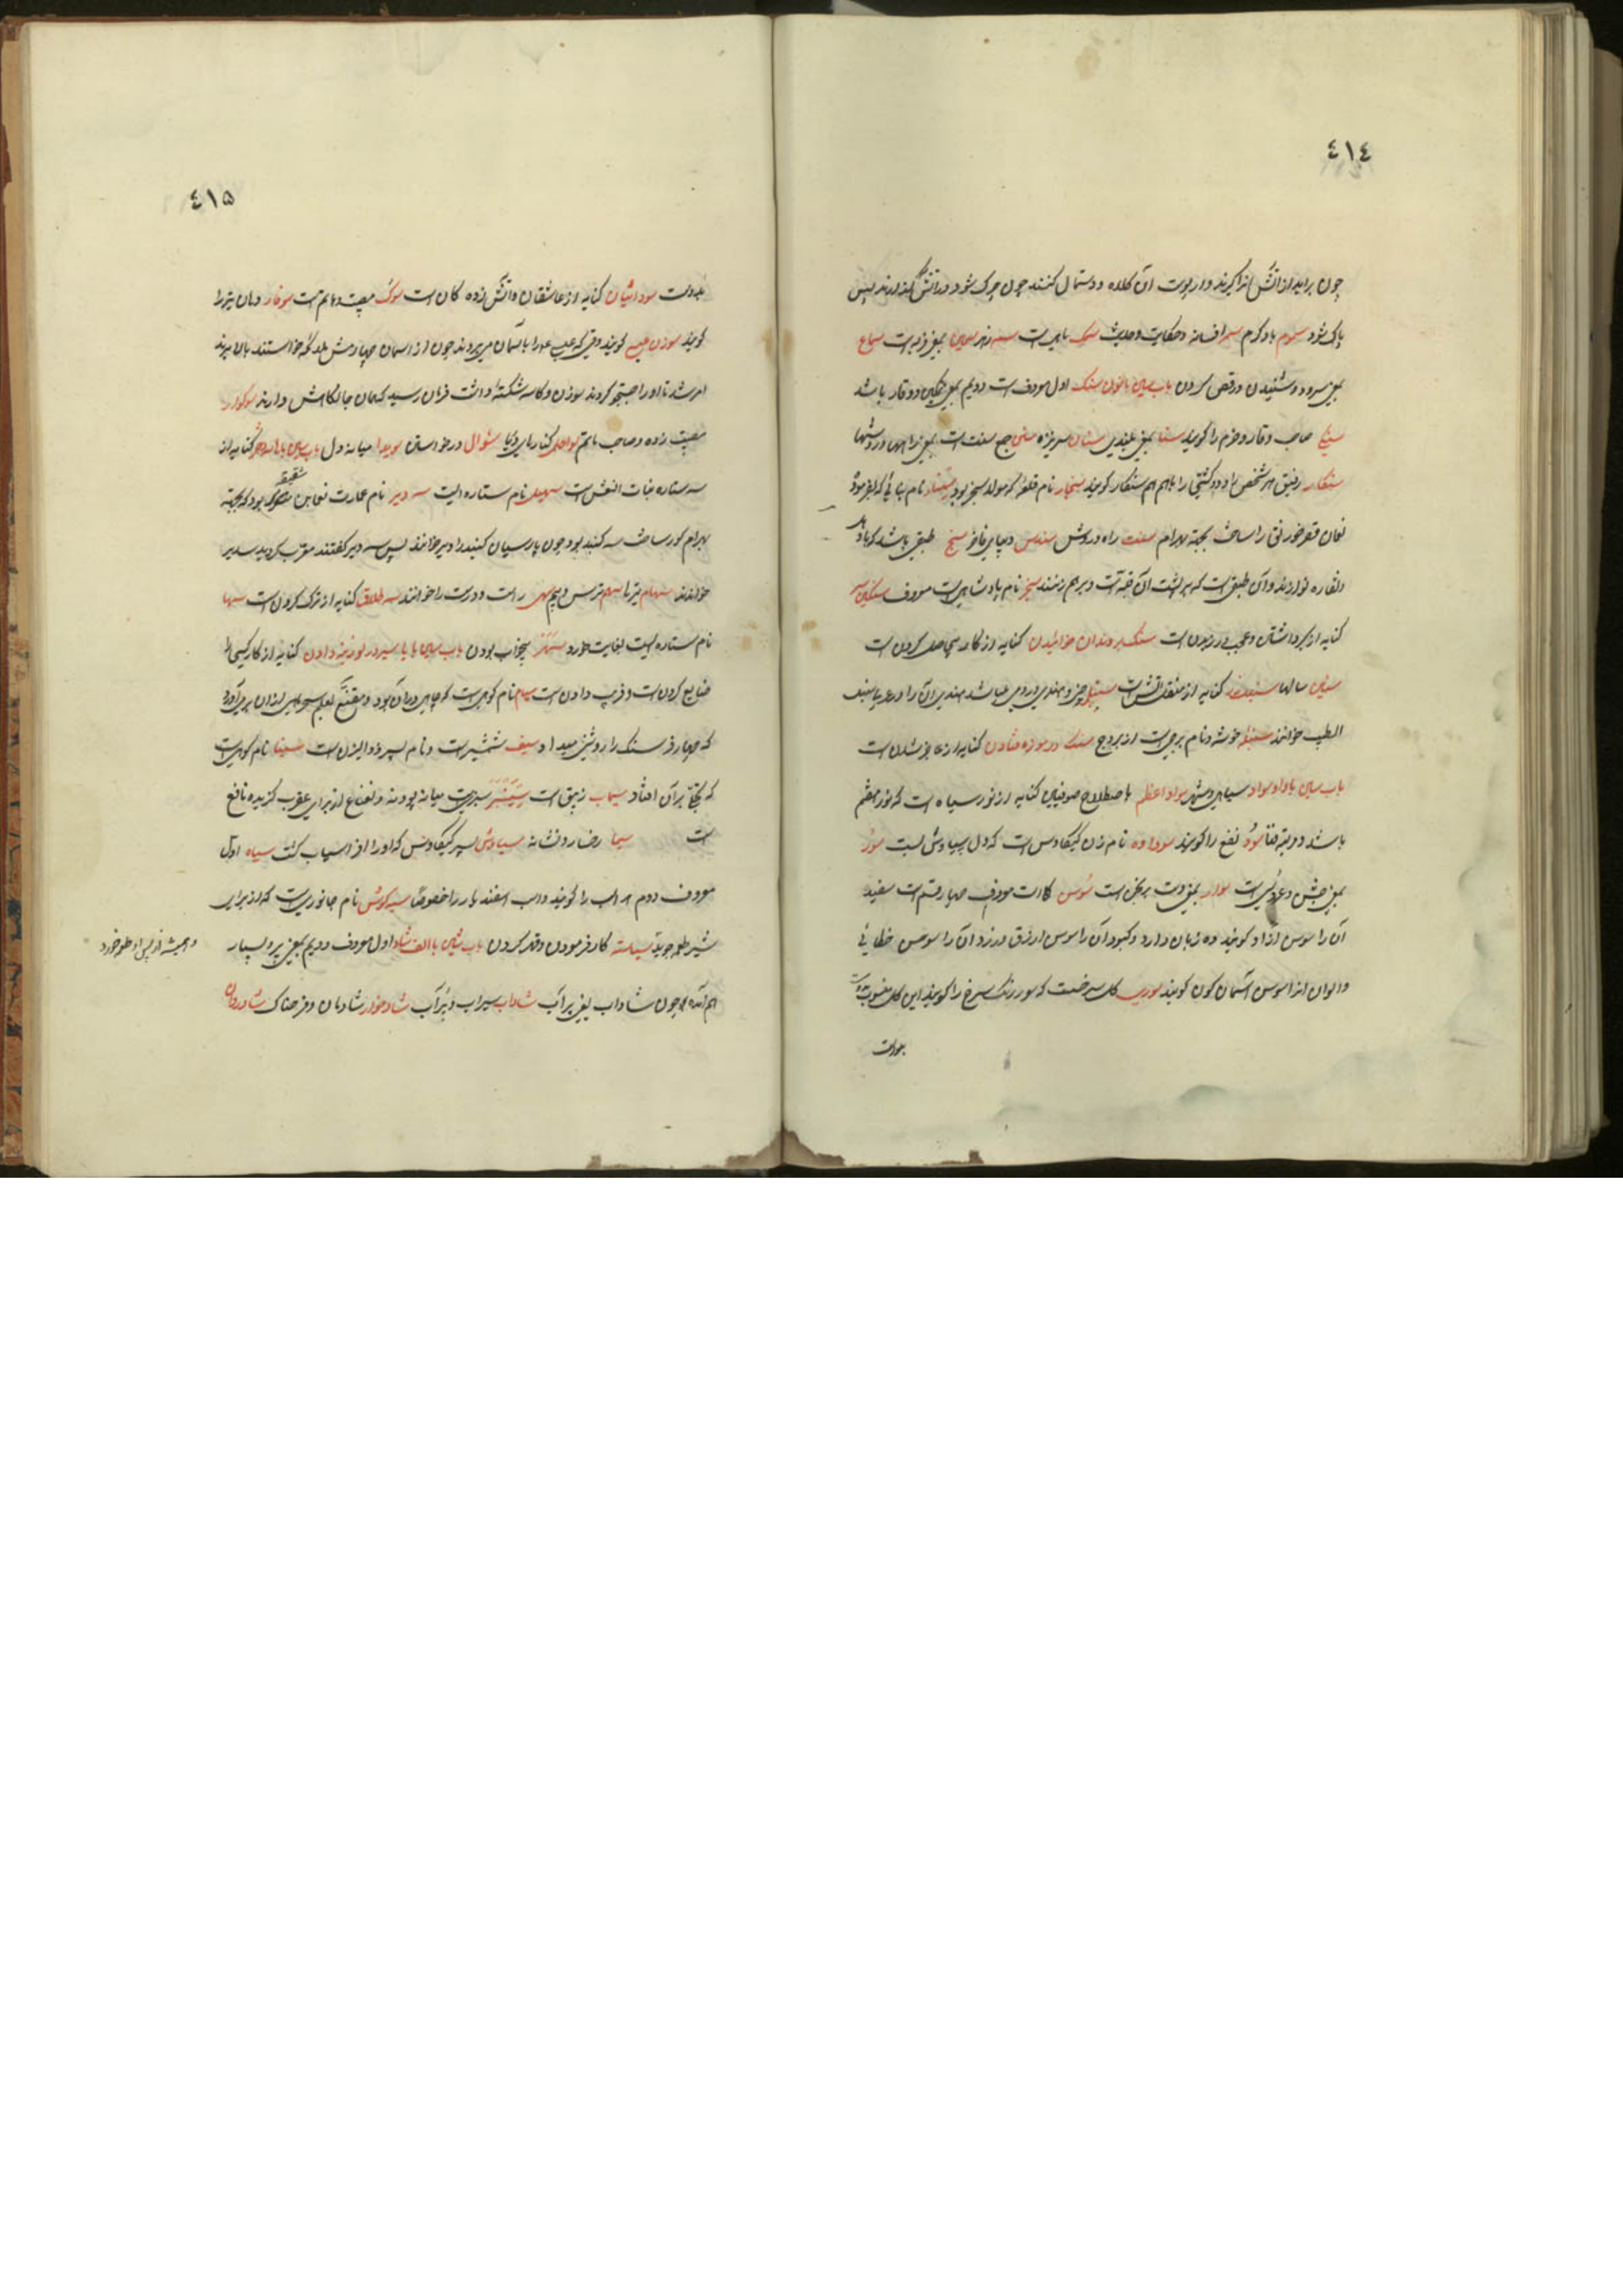 ٤١٤
چون برآید از آتش آنرا گیرند و از پوست آن کلاه و دستمال کنند چون چرک شود در آتش گذارند پس
پاک شود سموم باد گرم سمر افسانه و حکایت و حدیث سمک ماهی است سمه زهر سمین بمعنی فربه است سماع
بمعنی سرود و شنیدن و رقص کردن باب سین بانون سنگ اول معروفست دویم بمعنی تمکین و وقار باشد
صاحب وقار و حزم را گویند سنا بمعنی بلندی سنان سر نیزه سنن جمع سنت است بمعنی راهها و روشها
سنکار رفیق هر شخص را و دو کشتی را باهم هم سنکار گویند سنجار نام قلعه که مولد سنجر بود سنمار نام بنائی که بفرموده
نعمان قصر خورنق را ساخت بجهة بهرام سنت راه و روش سندس دیبای فاخر سنج طبقی باشد که با دهل
و نقاره نوازند و آن طبقی است که بر پشت آن قبه است و برهم زنند سنجر نام پادشاهی است معروف سنگین سر
کنایه از سنگ بر دندان خوائیدن کنایه از کار بیحاصل کردن است
سنین سالها کنایه از منقل آتش است سنبل
الطیب خوانند سنبله خوشه و نام برجی است از بروج سنگ در موزه فتادن کنایه از عاجز شدن است
باب سین با واو سواد سیاهی و شهر سواد اعظم باصطلاح صوفیان کنایه از نور سیاه است که نور هفتم
باشد در مرتبه فنا سود نفع را گویند سودا وه نام زن کیکاوس است که دل بسیاوش بست سور
بمعنی جشن و عروسی است سوار بمعنی دست برنجن است سوسن گلی است معروف چهار قسم است سفید
آن را سوسن آزاد گویند ده زبان دارد و کبود آن را سوسن ازرق و زرد آن را سوسن خطائی
و الوان آنرا سوسن آسمان گون گویند سوری گل سرخست که سور رنگ سرخ را گویند این گل منسوب
بدوست
٤١٥
بدوست سودائیان کنایه از عاشقان و آتش زده گان است سوگ مصیبت و ماتم است سوفار دهان تیر را
گویند سوزن عیسی گویند وقتی که عیسی ع را بآسمان میبردند چون از آسمان چهارمش ملائکه خواستند بالا برند
امر شد تا او را جستجو کردند سوزن و کاسه شکسته داشت فرمان رسید که همان جا نگاهش دارند سوگوار
مصیبت زده و صاحب ماتم سواحل کنارهای دریا سئوال درخواستن سویدا میانه دل باب سین با ها کنایه از
سه ستاره بنات النعش است سهیل نام ستاره ایست سه دیر نام عمارت نعمان شقیقه بود که بجهة
بهرام گور ساخت سه گنبد بود چون پارسیان گنبد را دیر خوانند پس سه دیر گفتند معرب کردند سدیر
خواندند سهام تیرها سهم ترس و بیم سهی راست و درست را خوانند سه طلاق کنایه از ترک کردن است سها
نام ستاره ایست بغایت خورد سهر بیخواب بودن باب سین با یا سیر در لوزینه دادن کنایه از کار کسی را
ضایع کردن است و فریب دادن است سیام نام کوهی است که چاهی در آن بود و مقنع بعلم سحر ماهی از آن بر می آورد
که چهار فرسنگ را روشنی میداد سیف شمشیر است و نام پسر ذوالیزن است سینا نام کوهی است
که تجلی بر آن افتاد سیماب زیبق است سیسنبر سبزی است میانه پودنه و نعناع از برای عقرب گزیده نافع
است سیما رخسار و نشانه سیاوش پسر کیکاوس که او را افراسیاب کشت سیاه اول
معروف دوم اسب را گویند و اسب اسفندیار را خصوصا سیه گوش نام جانوری است که از برای
شیر طعمه جوید کار فرمودن و قهر کردن باب شین با الف شاد اول معروف دویم بمعنی پر و بسیار
هم آمده چون شاداب یعنی پر آب شاداب سیراب و پر آب شادخوار شادمان و فرحناک شادروان
و همیشه از پس او طعمه خورد